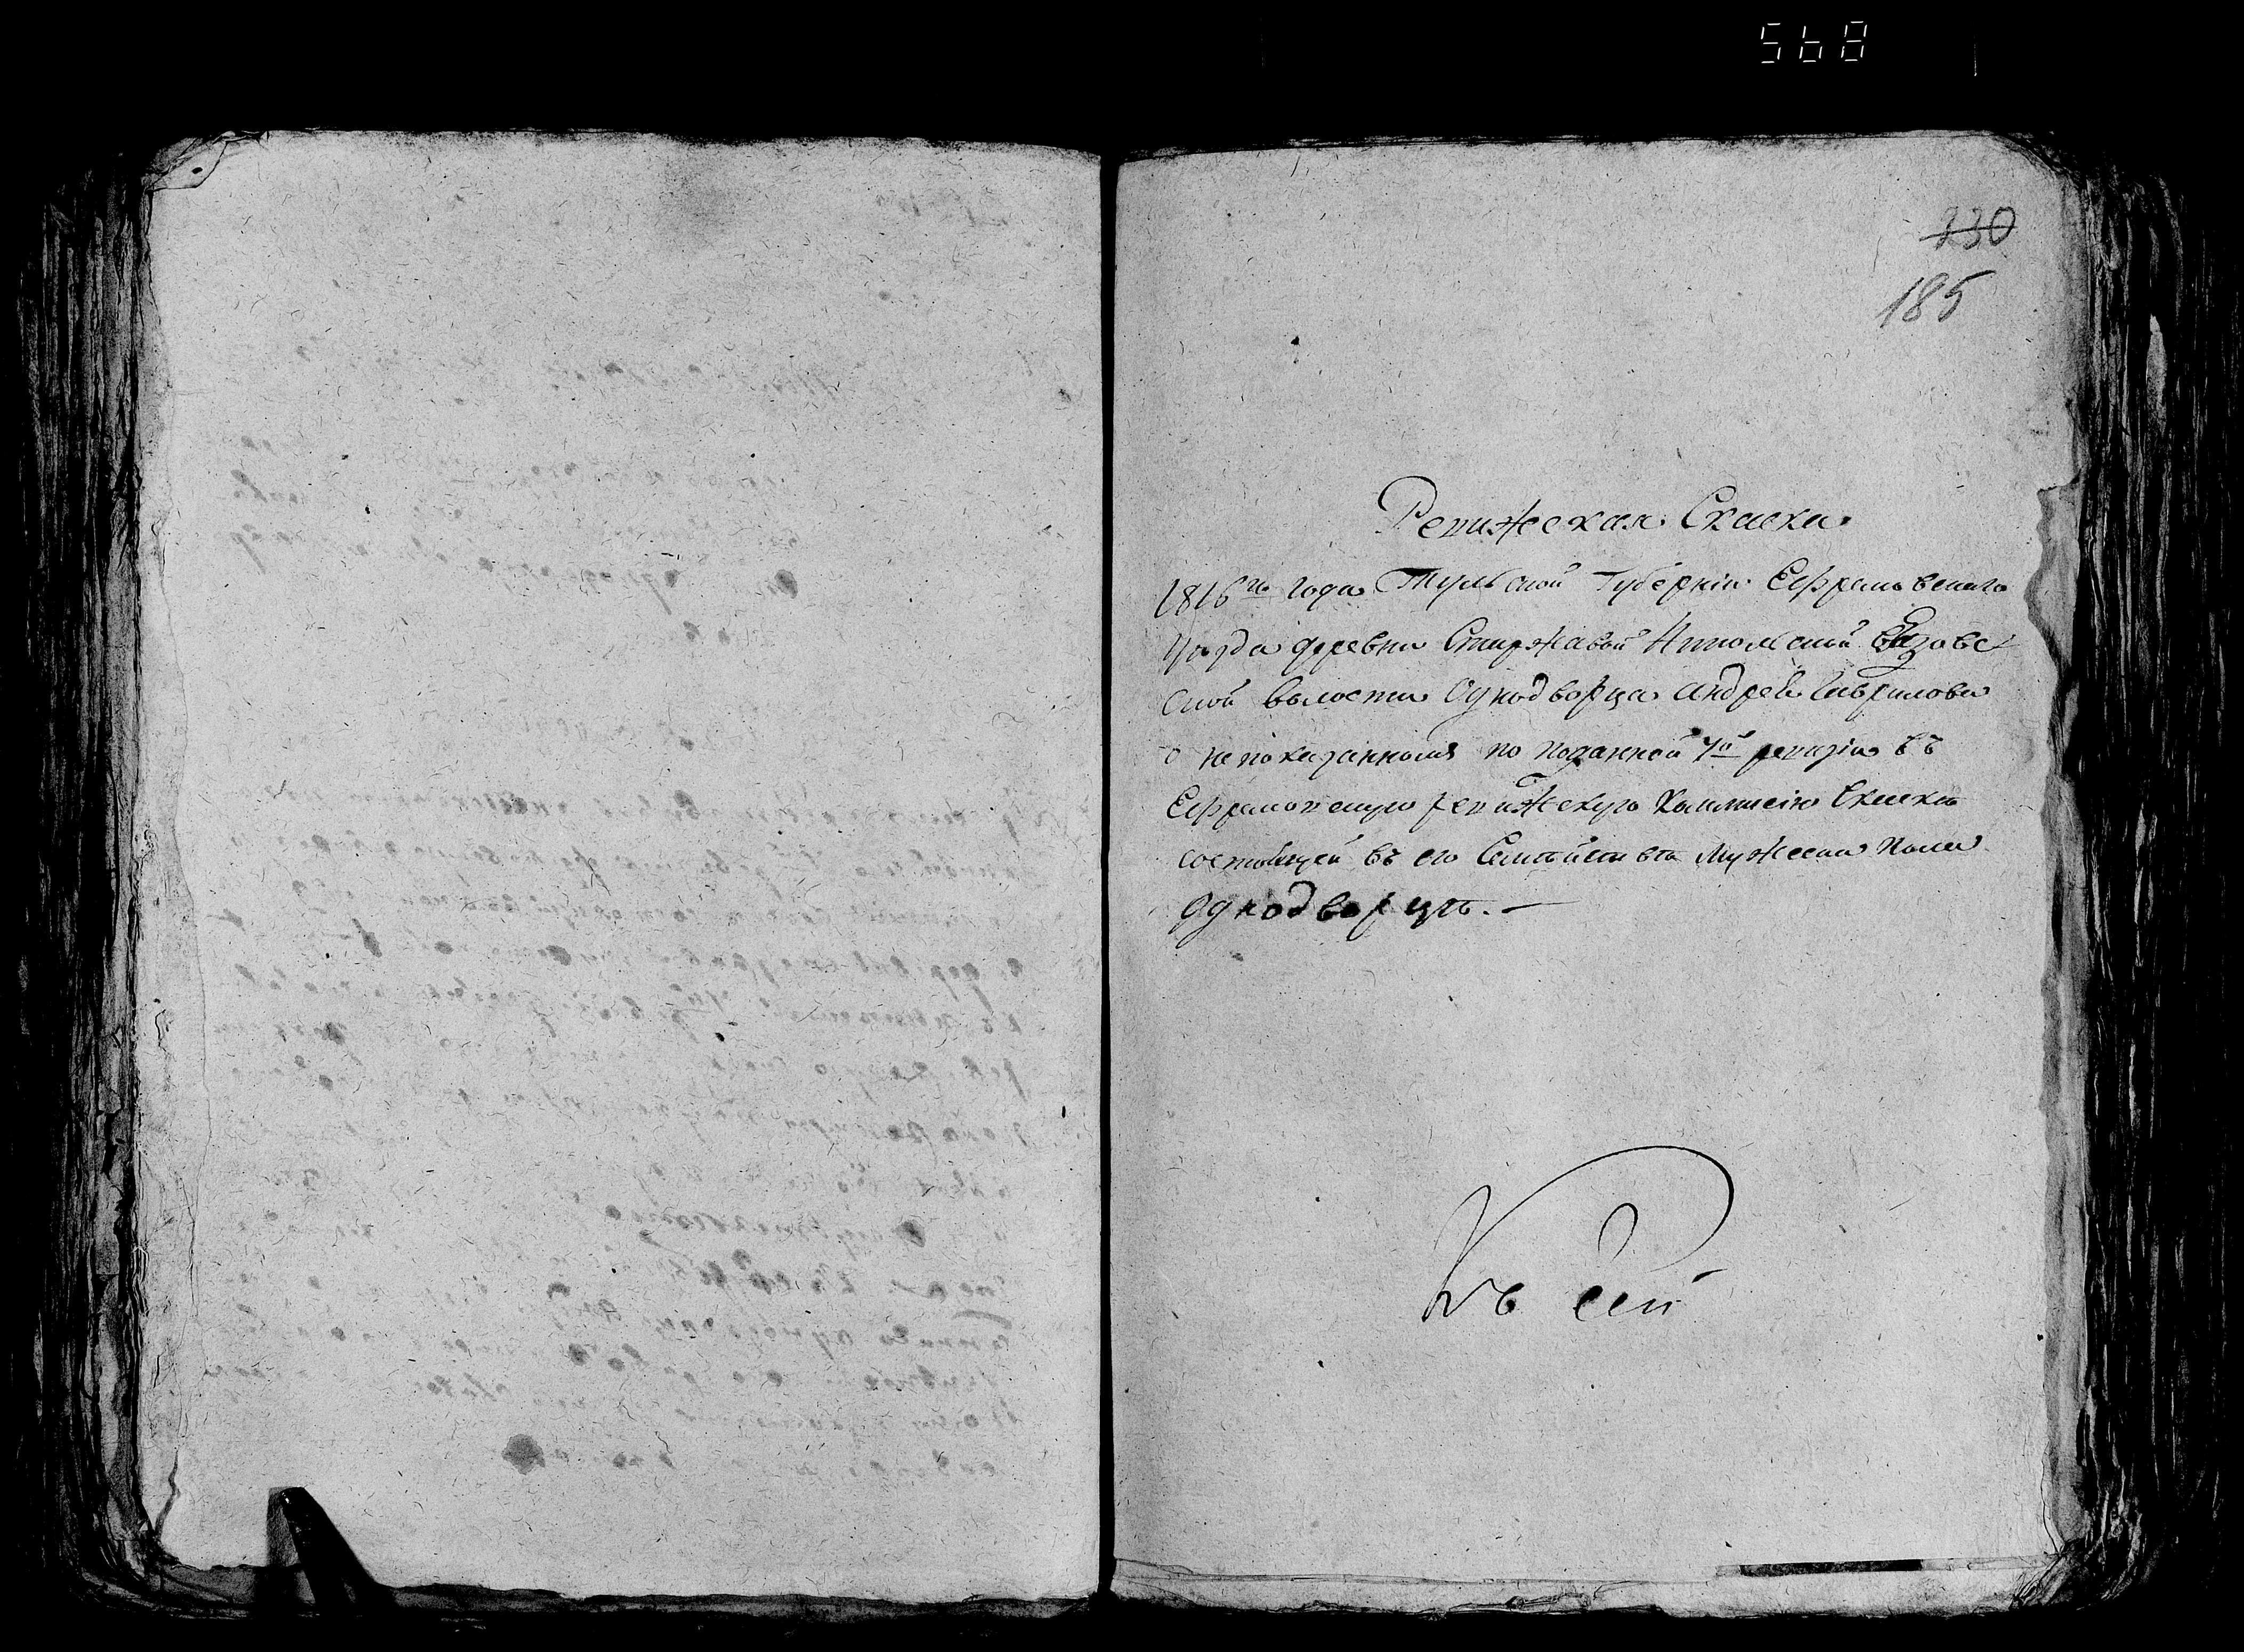 568
230
185
Ревижская Скаска
1816го года Тульской Губерніи Ефремовскаго
уезда деревни Стиржавой Никольской Вязовс
ской волости Однодворца Андрея Гаврилова
о непоказанномъ по поданной 7й ревизіи въ
Ефремовскую ревижскую Коммисію Скаске
состоящей въ его Семействе Мужеска пола
Однодворце. —
Къ сей